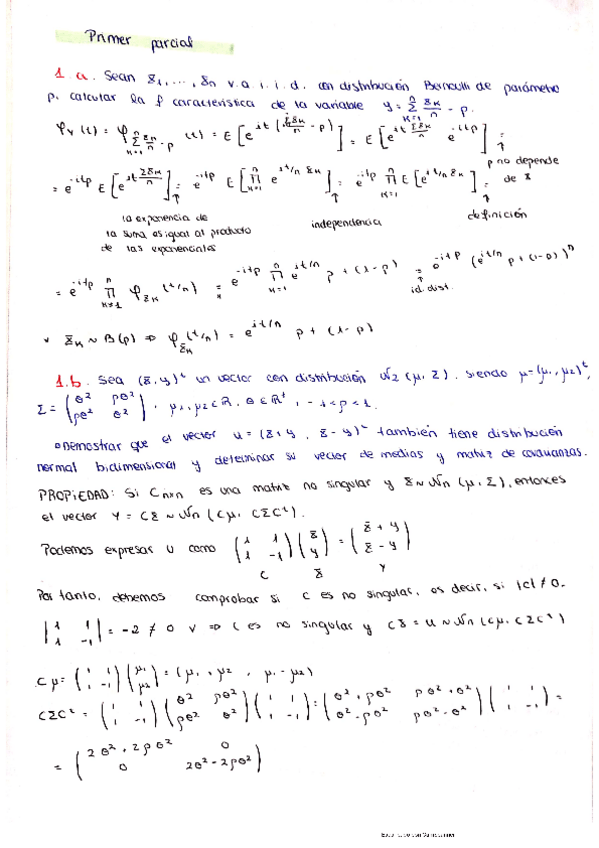 Primer parcial
1. a. Sean X₁, ..., Xₙ v.a.i.i.d. con distribución Bernoulli de parámetro
p. calcular la f característica de la variable Y = Σₖ₌₁ⁿ Xₖ/n - p.
φ_Y(t) = φ_{Σₖ₌₁ⁿ Xₖ/n - p}(t) = E[e^{it(ΣXₖ/n - p)}] = E[e^{it ΣXₖ/n} e^{-itp}] =
p no depende de X
= e^{-itp} E[e^{it ΣXₖ/n}] = e^{-itp} E[∏ₖ₌₁ⁿ e^{it/n Xₖ}] = e^{-itp} ∏ₖ₌₁ⁿ E[e^{it/n Xₖ}] =
la exponencia de la suma es igual al producto de las exponenciales
independencia
definición
= e^{-itp} ∏ₖ₌₁ⁿ φ_{Xₖ}(t/n) =* e^{-itp} ∏ₖ₌₁ⁿ e^{it/n} p + (1-p) = e^{-itp} (e^{it/n} p + (1-p))ⁿ
id. dist.
* Xₖ ~ B(p) ⇒ φ_{Xₖ}(t/n) = e^{it/n} p + (1-p)
1.b. Sea (X, Y)ᵗ un vector con distribución N₂(μ, Σ), siendo μ = (μ₁, μ₂)ᵗ,
Σ = (θ² ρθ² / ρθ² θ²), μ₁, μ₂ ∈ ℝ, θ ∈ ℝ⁺, -1 < ρ < 1.
Demostrar que el vector U = (X+Y, X-Y)ᵗ también tiene distribución
normal bidimensional y determinar su vector de medias y matriz de covarianzas.
PROPIEDAD: Si Cₙₓₙ es una matriz no singular y X ~ Nₙ(μ, Σ), entonces
el vector Y = CX ~ Nₙ(Cμ, CΣCᵗ).
Podemos expresar U como (1 1 / 1 -1)(X / Y) = (X + Y / X - Y)
C X Y
Por tanto, debemos comprobar si C es no singular, es decir, si |C| ≠ 0.
|1 1 / 1 -1| = -2 ≠ 0 ✓ ⇒ C es no singular y CX = U ~ Nₙ(Cμ, CΣCᵗ)
Cμ = (1 1 / 1 -1)(μ₁ / μ₂) = (μ₁ + μ₂, μ₁ - μ₂)
CΣCᵗ = (1 1 / 1 -1)(θ² ρθ² / ρθ² θ²)(1 1 / 1 -1) = (θ² + ρθ² ρθ² + θ² / θ² - ρθ² ρθ² - θ²)(1 1 / 1 -1) =
= (2θ² + 2ρθ² 0 / 0 2θ² - 2ρθ²)